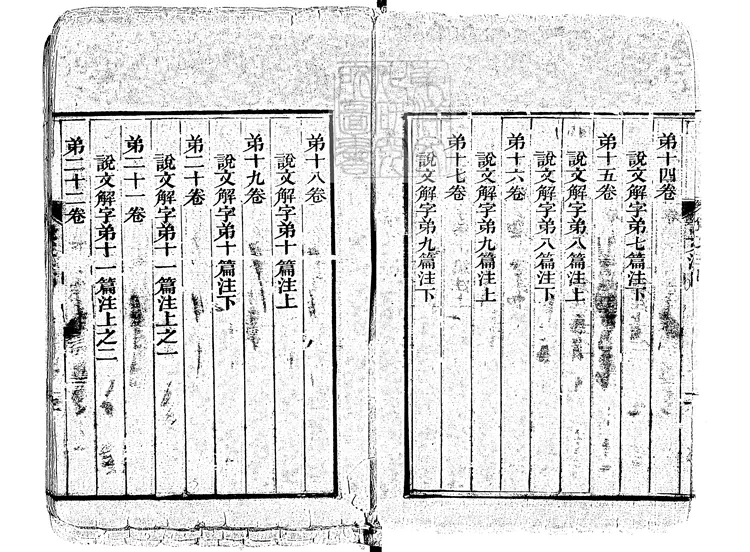 弟十四卷
說文解字弟七篇注下
弟十五卷
說文解字弟八篇注上
說文解字弟八篇注下
弟十六卷
說文解字弟九篇注上
弟十七卷
說文解字弟九篇注下
弟十八卷
說文解字弟十篇注上
弟十九卷
說文解字弟十篇注下
弟二十卷
說文解字弟十一篇注上之一
弟二十一卷
說文解字弟十一篇注上之二
弟二十二卷